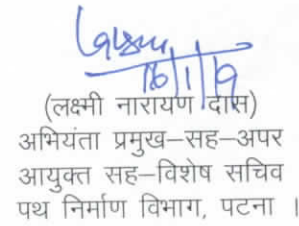 16/1/19
(लक्ष्मी नारायण दास)
अभियंता प्रमुख–सह–अपर
आयुक्त सह–विशेष सचिव
पथ निर्माण विभाग, पटना ।